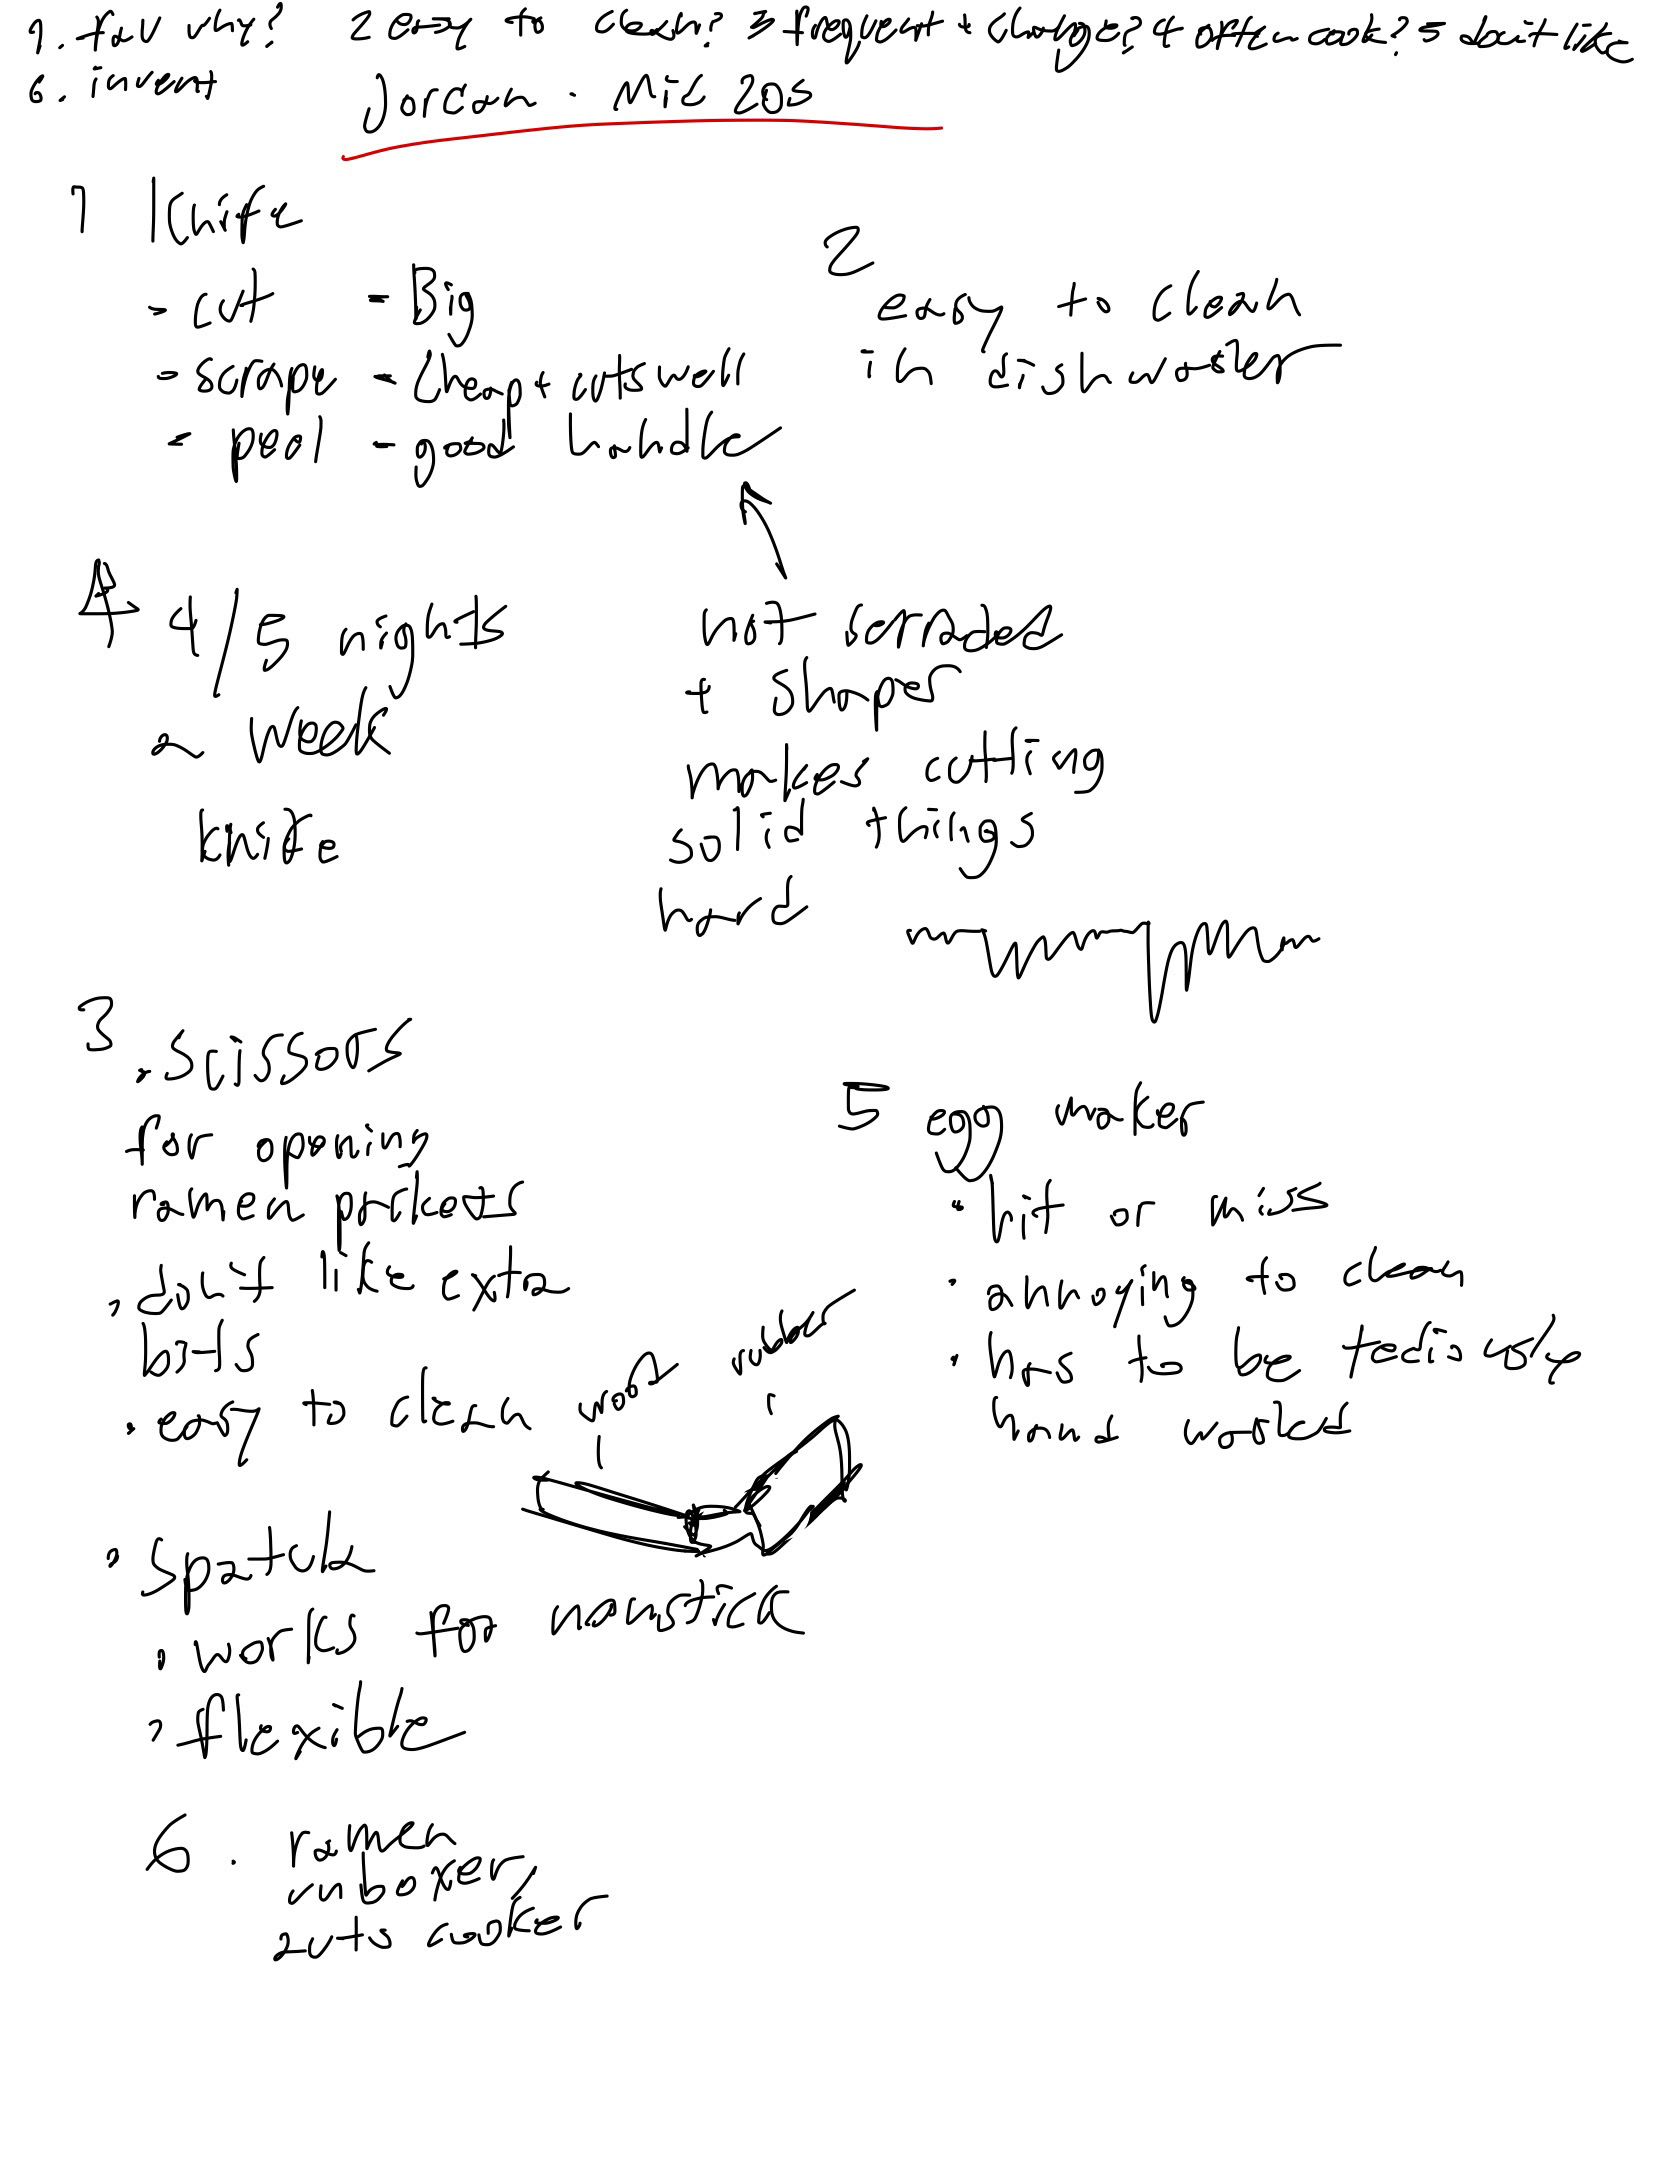 1. fav why? 2 easy to clean? 3 frequent + change? 4 often cook? 5 don't like
6. invent
Jordan . Mid 20s
1 Knife
- cut - Big
- scrape - Cheap + cuts well
- peel - good handle
2
easy to clean
in dishwasher
4 4/5 nights
a week
knife
not serraded
+ shaper
makes cutting
solid things
hard
3 . Scissors
for opening
ramen packets
. don't like extra
bits
. easy to clean
wood
rubber
. spatula
. works for nonstick
. flexible
5 egg maker
. hit or miss
. annoying to clean
. has to be tediously
hand washed
6 . ramen
unboxer,
auto cooker